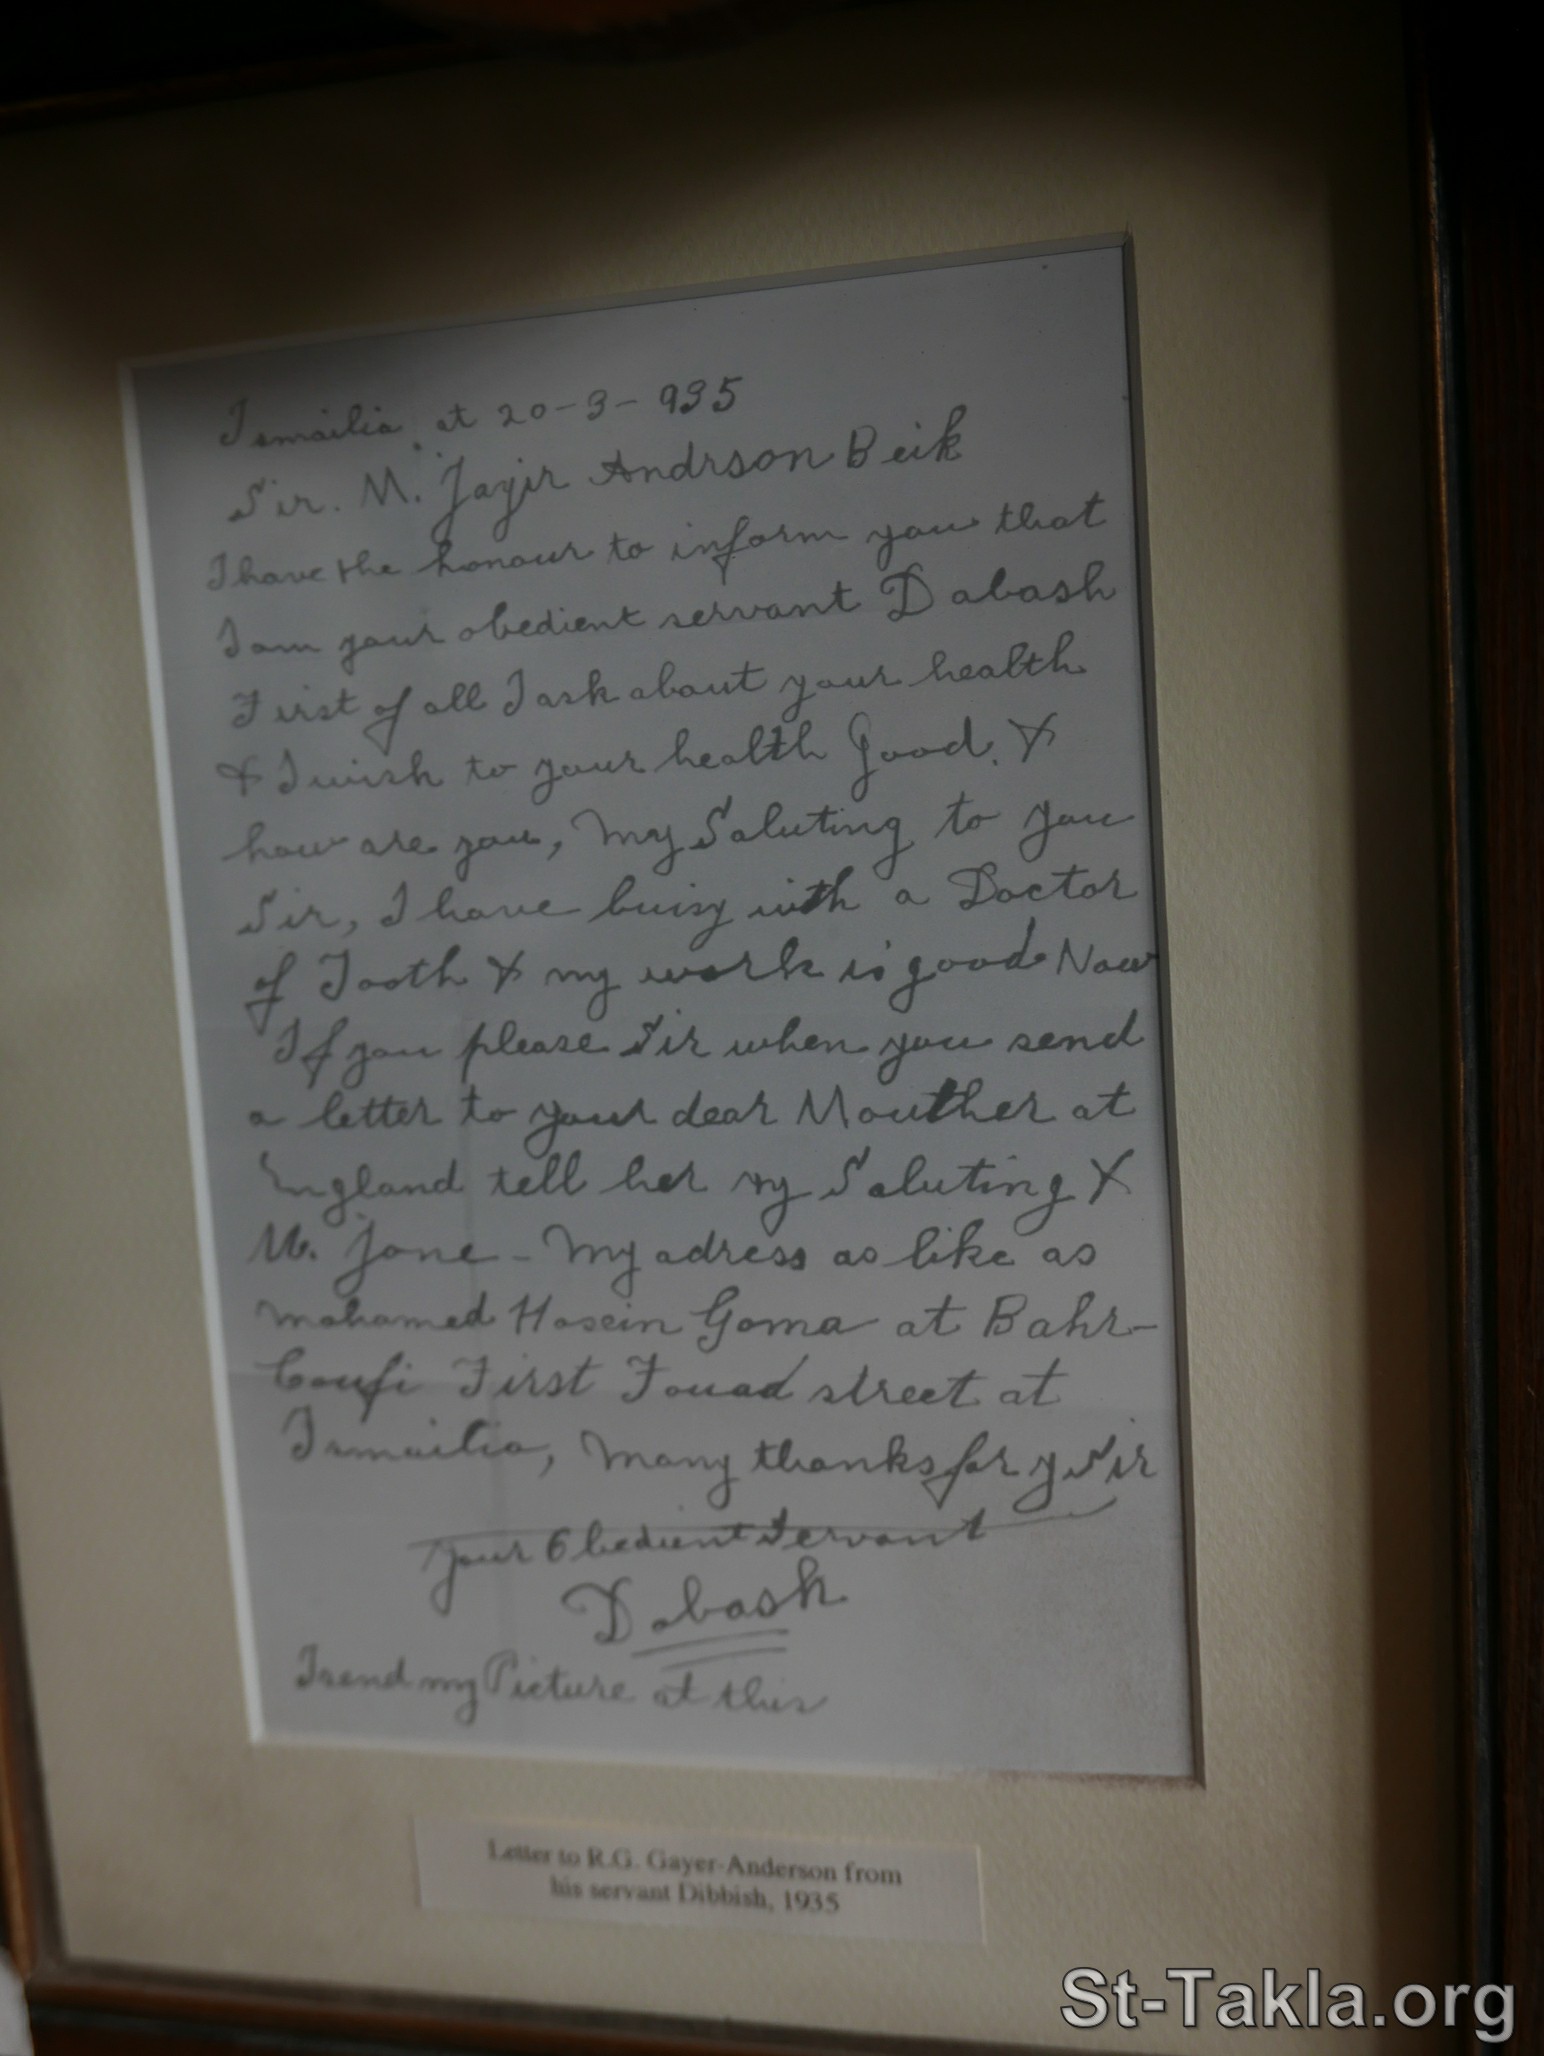 Ismailia, at 20-3-935
Sir. M. Jayir Andrson Beik
I have the honour to inform you that
I am your obedient servant Dabash
First of all I ask about your health
& I wish to your health Good. &
how are you, My Saluting to you
Sir, I have buisy with a Doctor
of Tooth & my work is good Now
If you please Sir when you send
a letter to your dear Mouther at
England tell her my Saluting &
M. Jone - My adress as like as
Mohamed Hosein Goma at Bahr-
First Fouad street at
Ismailia, Many thanks for y Sir
your Obedient Servant
Dabash
I send my Picture at this
Letter to R.G. Gayer-Anderson from
his servant Dibbish, 1935
St-Takla.org